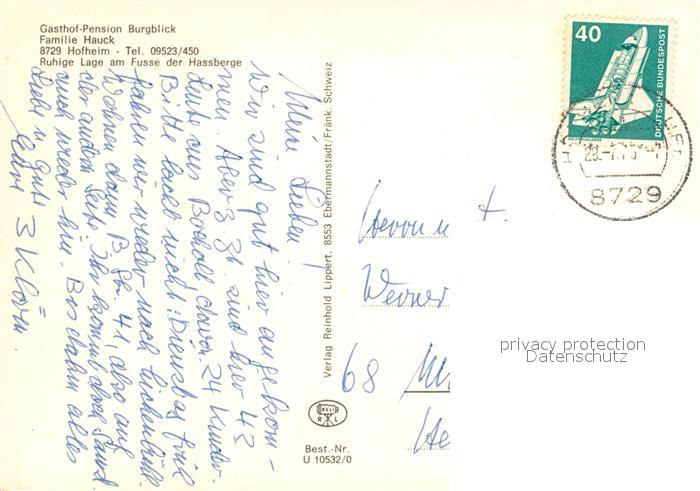 Gasthof-Pension Burgblick
Familie Hauck
8729 Hofheim - Tel. 09523/450
Ruhige Lage am Fusse der Hassberge
Meine Lieben!
Wir sind gut hier angekom-
men. Aber z. Zt. sind hier 43
Leute aus davon 24 Kinder.
Bitte lacht nicht: Dienstag früh
fahren wir wieder nach
Wohnen dann B. Str. 41, also auf
der andern Seite. Ihr kommt doch
auch wieder hin. Bis dahin alles
Liebe u. Gute
Eure 3
Verlag Reinhold Lippert, 8553 Ebermannstadt/Fränk. Schweiz
RELI
R L
Best.-Nr.
U 10532/0
40
DEUTSCHE BUNDESPOST
8729
Herrn u.
Werner
68
privacy protection
Datenschutz